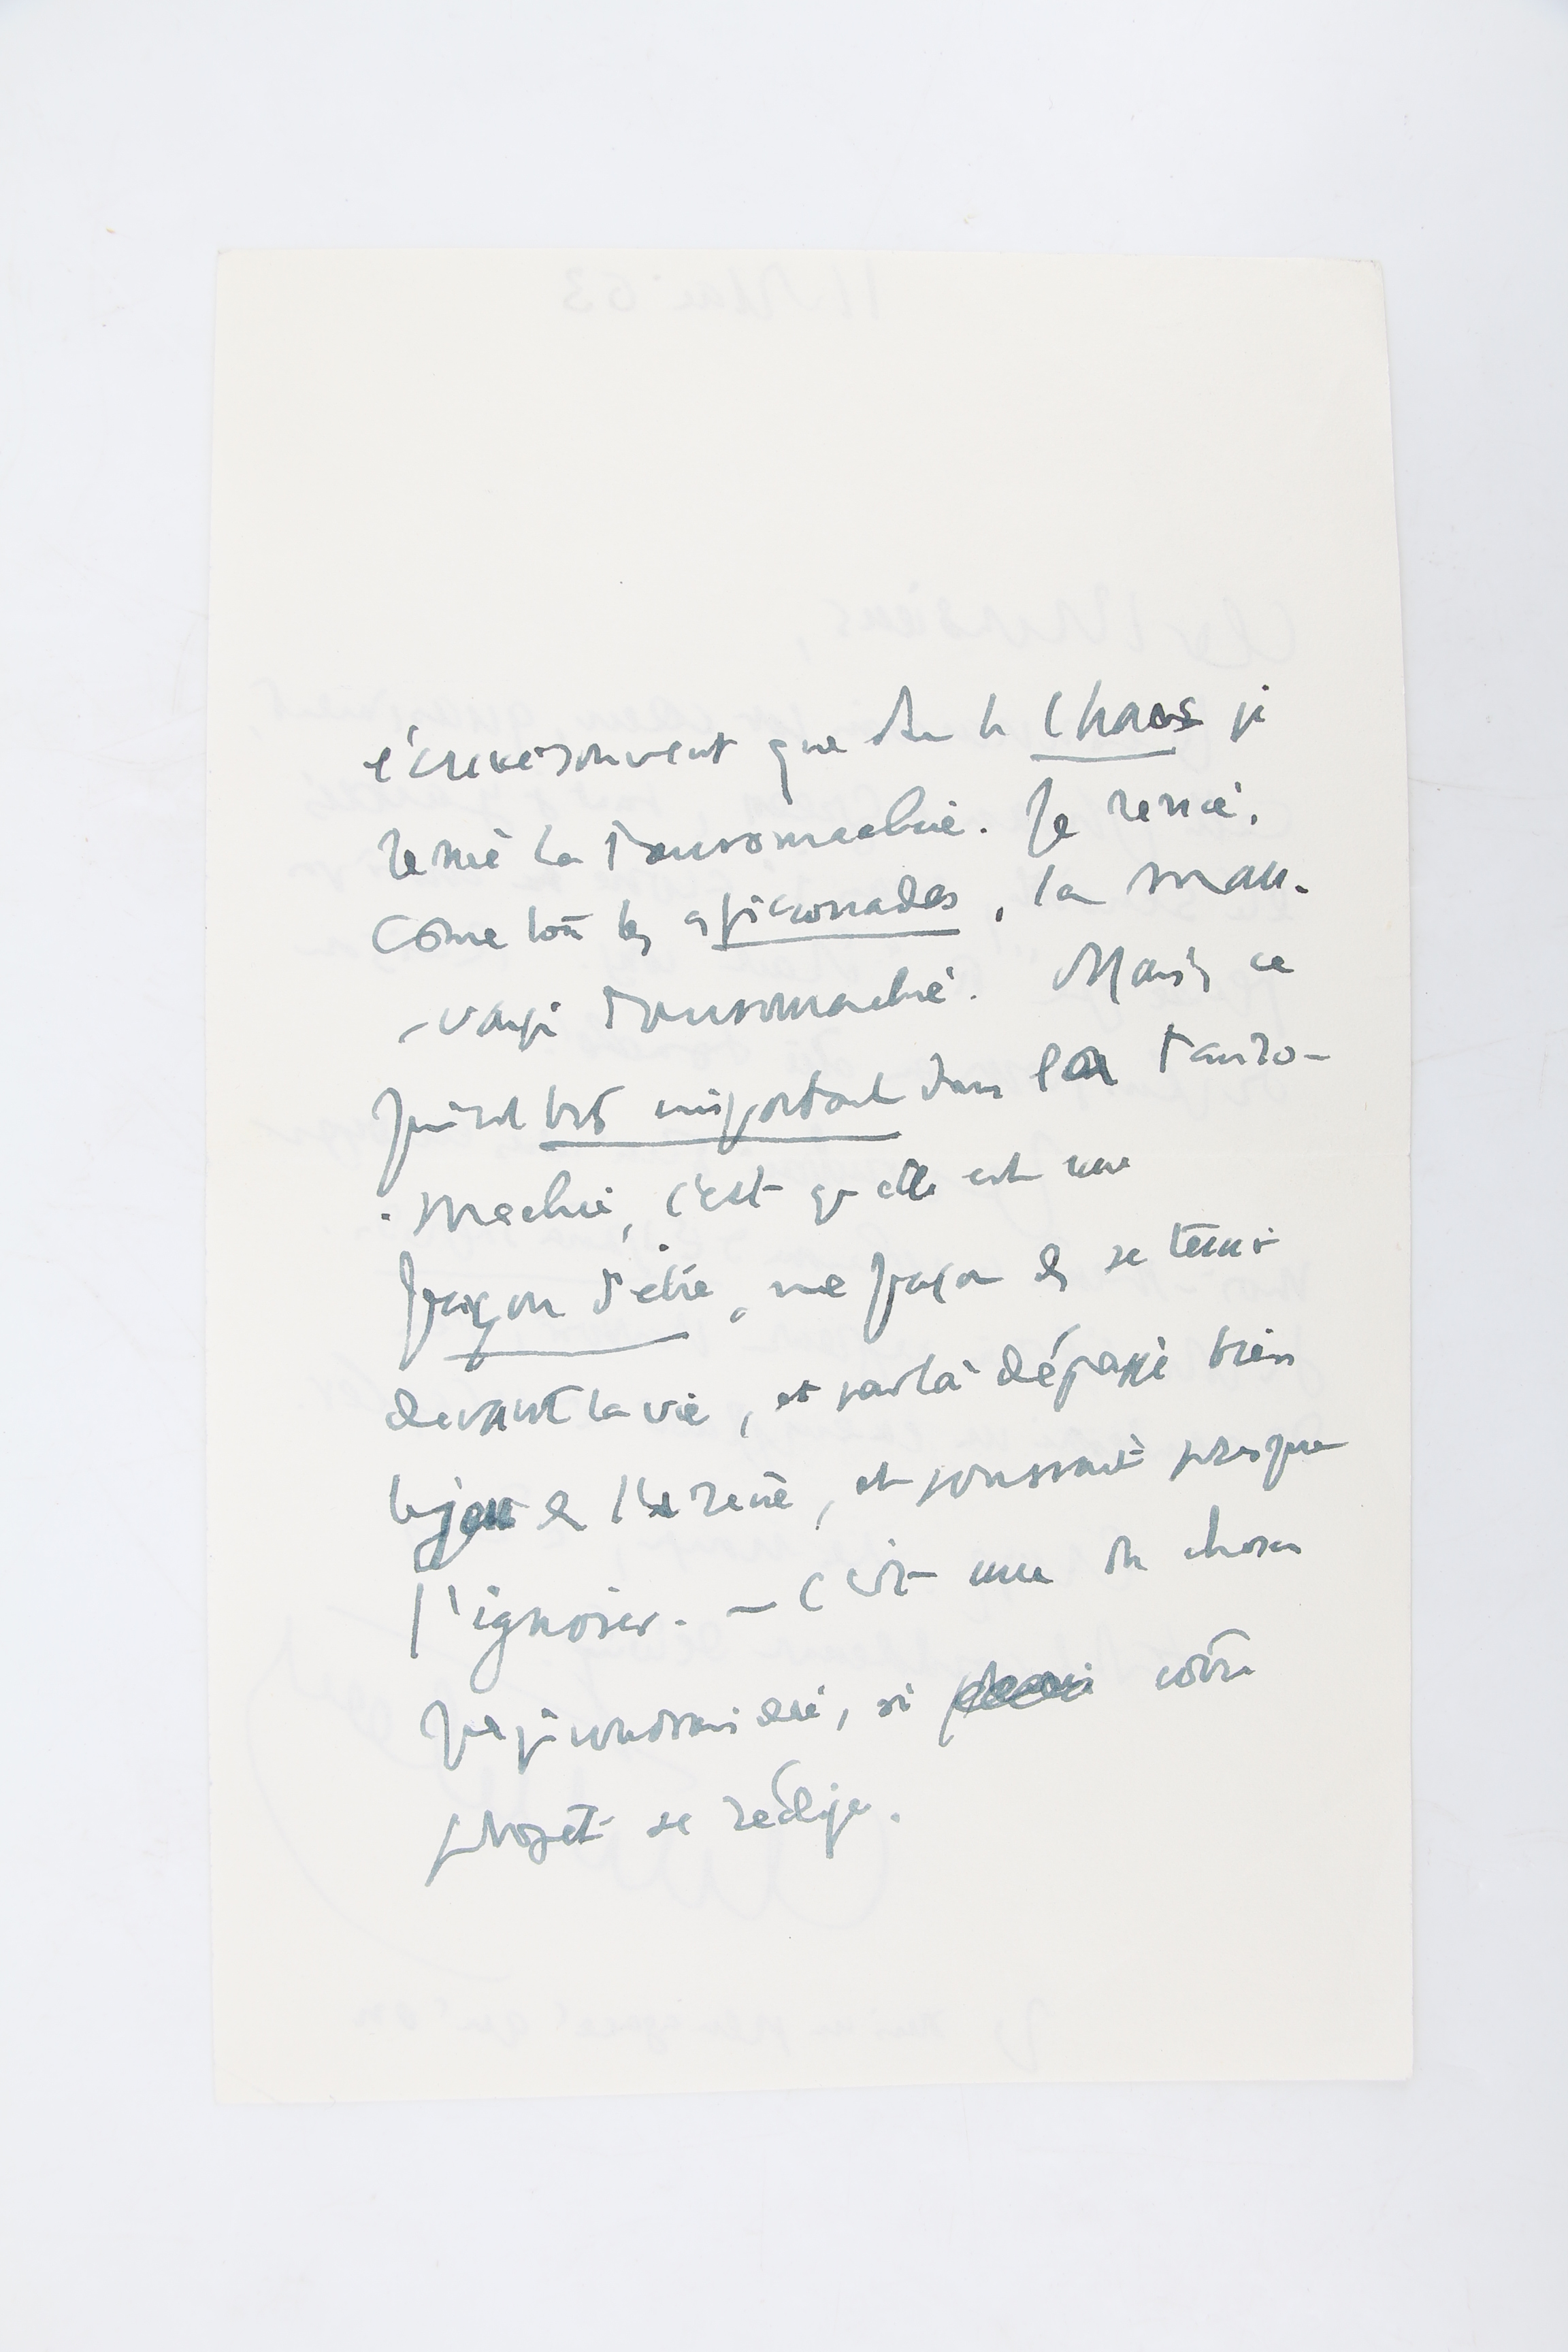 écrive souvent que dans le Chaos je
renie la Tauromachie. Je renie,
Comme tous les aficionados, la mau-
-vaise Tauromachie. Mais ce
qui est très important dans la Tauro-
-machie, c'est qu'elle est une
façon d'être, une façon de se tenir
devant la vie, et par là dépasse bien
le jeu de l'arène, et pourrait presque
l'ignorer. – C'est une des choses
que je voudrais dire, si votre
projet se rédige.